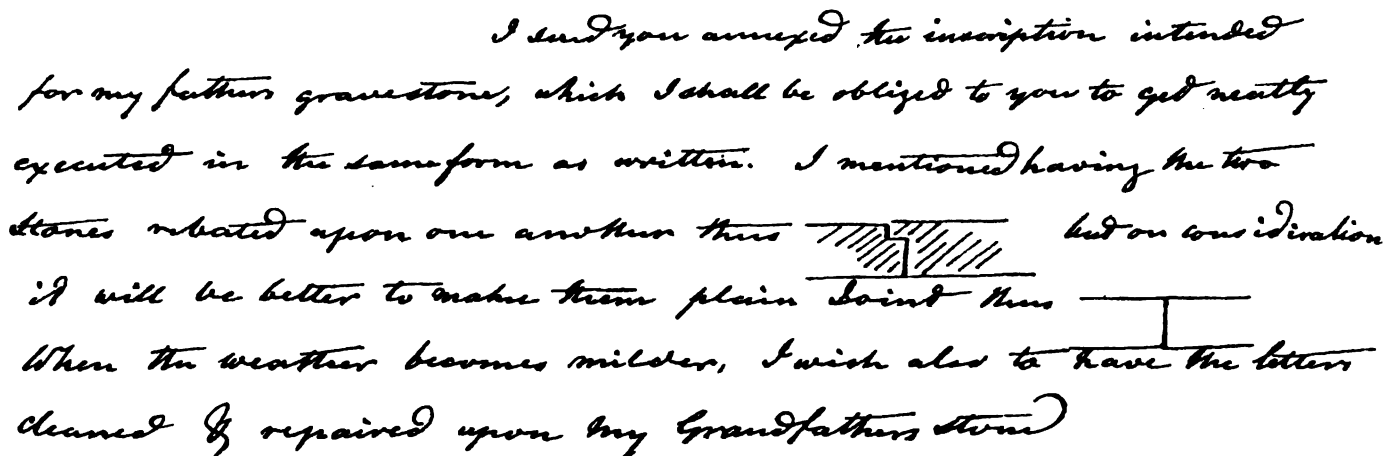 I send you annexed the inscription intended
for my fathers gravestone, which I shall be obliged to you to get neatly
executed in the same form as written. I mentioned having the two
stones rebated upon one another thus but on consideration
it will be better to make them plain Joint thus
When the weather becomes milder, I wish also to have the letters
cleaned & repaired upon my Grandfathers stone